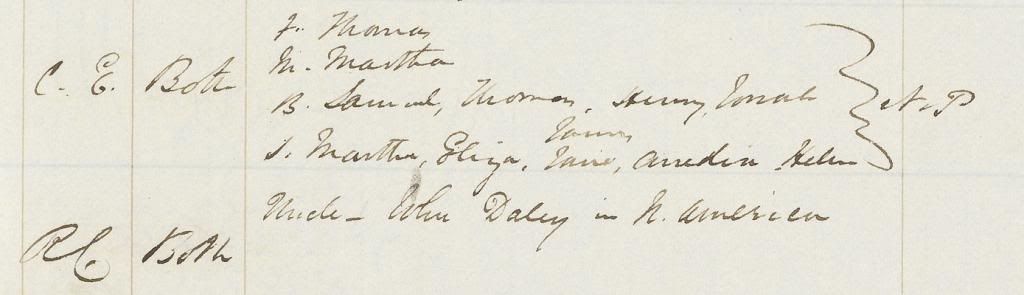 F. Thomas
M. Martha
C. E. Both B. Samuel, Thomas, Henry, Jonah N. P
James
S. Martha, Eliza, Jane, Helen
Uncle - John Daley in N. America
R C Both